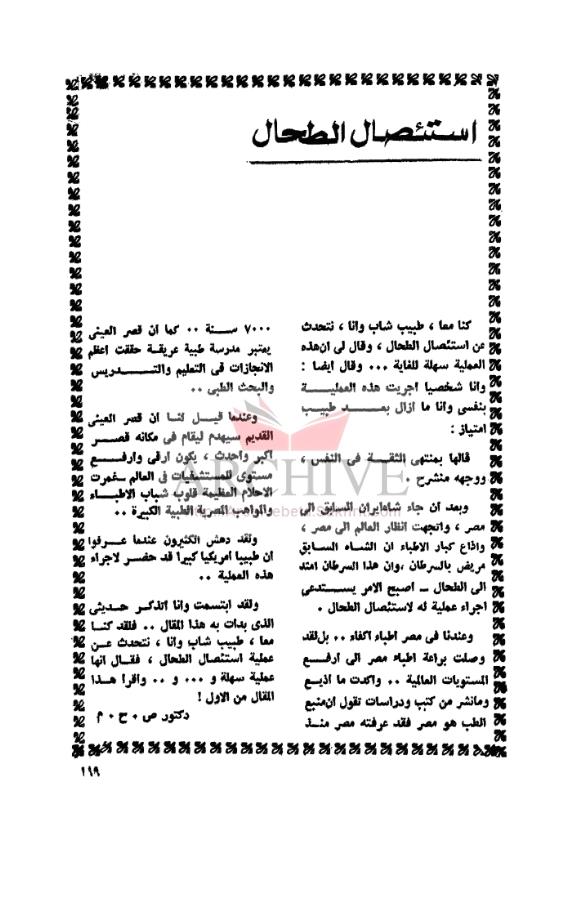 استئصال الطحال
كنا معا ، طبيب شاب وانا ، نتحدث
عن استئصال الطحال ، وقال لى ان هذه
العملية سهلة للغاية ... وقال ايضا :
وانا شخصيا اجريت هذه العمليــة
بنفسى وانا ما ازال بعــد طبيب
امتياز :
قالها بمنتهى الثقــة فى النفس ،
ووجهه منشرح .
وبعد ان جاء شاه ايران السابق الى
مصر ، واتجهت انظار العالم الى مصر ،
واذاع كبار الاطباء ان الشاه السابق
مريض بالسرطان ، وان هذا السرطان امتد
الى الطحال ــ اصبح الامر يستدعى
اجراء عملية له لاستئصال الطحال .
وعندنا فى مصر اطباء اكفاء .. بل لقد
وصلت براعة اطباء مصر الى ارفــع
المستويات العالمية .. واكدت ما اذيع
وما نشر من كتب ودراسات تقول ان منبع
الطب هو مصر فقد عرفته مصر منــذ
٧٠٠٠ ســنة .. كما ان قصر العينى
يعتبر مدرسة طبية عريقة حققت اعظم
الانجازات فى التعليم والتــدريس
والبحث الطبى ..
وعندما قيــل لنــا ان قصر العينى
القديم سيهدم ليقام فى مكانه قصــر
اكبر واحدث ، يكون ارقى وارفــع
مستوى للمستشفيات فى العالم ــ غمرت
الاحلام العظيمة قلوب شباب الاطبــاء
والمواهب المصرية الطبية الكبيرة ..
ولقد دهش الكثيرون عندما عــرفوا
ان طبيبا امريكيا كبيرا قد حضــر لاجراء
هذه العملية ..
ولقد ابتسمت وانا اتذكــر حــديثى
الذى بدات به هذا المقال .. فلقد كنــا
معا ، طبيب شاب وانا ، نتحدث عــن
عملية استئصال الطحال ، فقــال انها
عملية سهلة و ... و .. واقرا هــذا
المقال من الاول !
دكتور ص . ح . م
١١٩
ARCHIVE